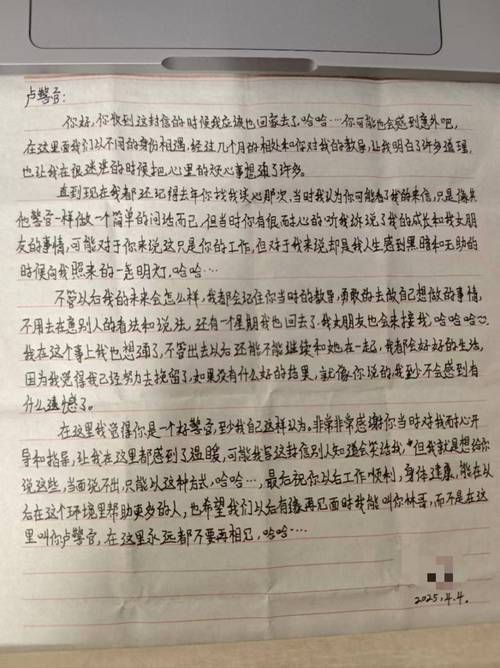 卢警官:
你好,你收到这封信的时候我应该也回家去了,哈哈…你可能也会感到意外吧,
在这里面我们以不同的身份相遇,经过几个月的相处和你对我的教导,让我明白了许多道理,
也让我在很迷茫的时候把心里的烦心事想通了许多。
直到现在我都还记得去年你找我谈心那次,当时我认为你可能看了我的来信,只是像其
他警官一样做一个简单的问话而已,但当时你有很耐心的听我诉说了我的成长和我女朋
友的事情,可能对于你来说这只是你的工作,但对于我来说却是我人生感到黑暗和无助的
时候向我照来的一盏明灯,哈哈…
不管以后我的未来会怎么样,我都会记住你当时的教导,勇敢的去做自己想做的事情,
不用去在意别人的看法和说法,还有一个星期我也回去了,我女朋友也会来接我,哈哈哈
我在这个事上我也想通了,不管出去以后还能不能继续和她在一起,我都会好好的生活,
因为我觉得我已经努力去挽留了,如果没有什么好的结果,就像你说的,我到少不会感到有
什么遗憾了。
在这里我觉得你是一个好警官,至少我自己这样认为。非常非常感谢你当时对我耐心开
导和指导,让我在这里都感到了温暖,可能我写这封信别人知道会笑话我,但我就是想给你
说这些,当面说不出,只能以这种方式,哈哈…,最后祝你以后工作顺利,身体健康,能在以
后在这个环境里帮助更多的人,也希望我们以后有缘再见面时我能叫你林哥,而不是在这
里叫你卢警官,在这里永远都不要再相见,哈哈…
2025.4.4.